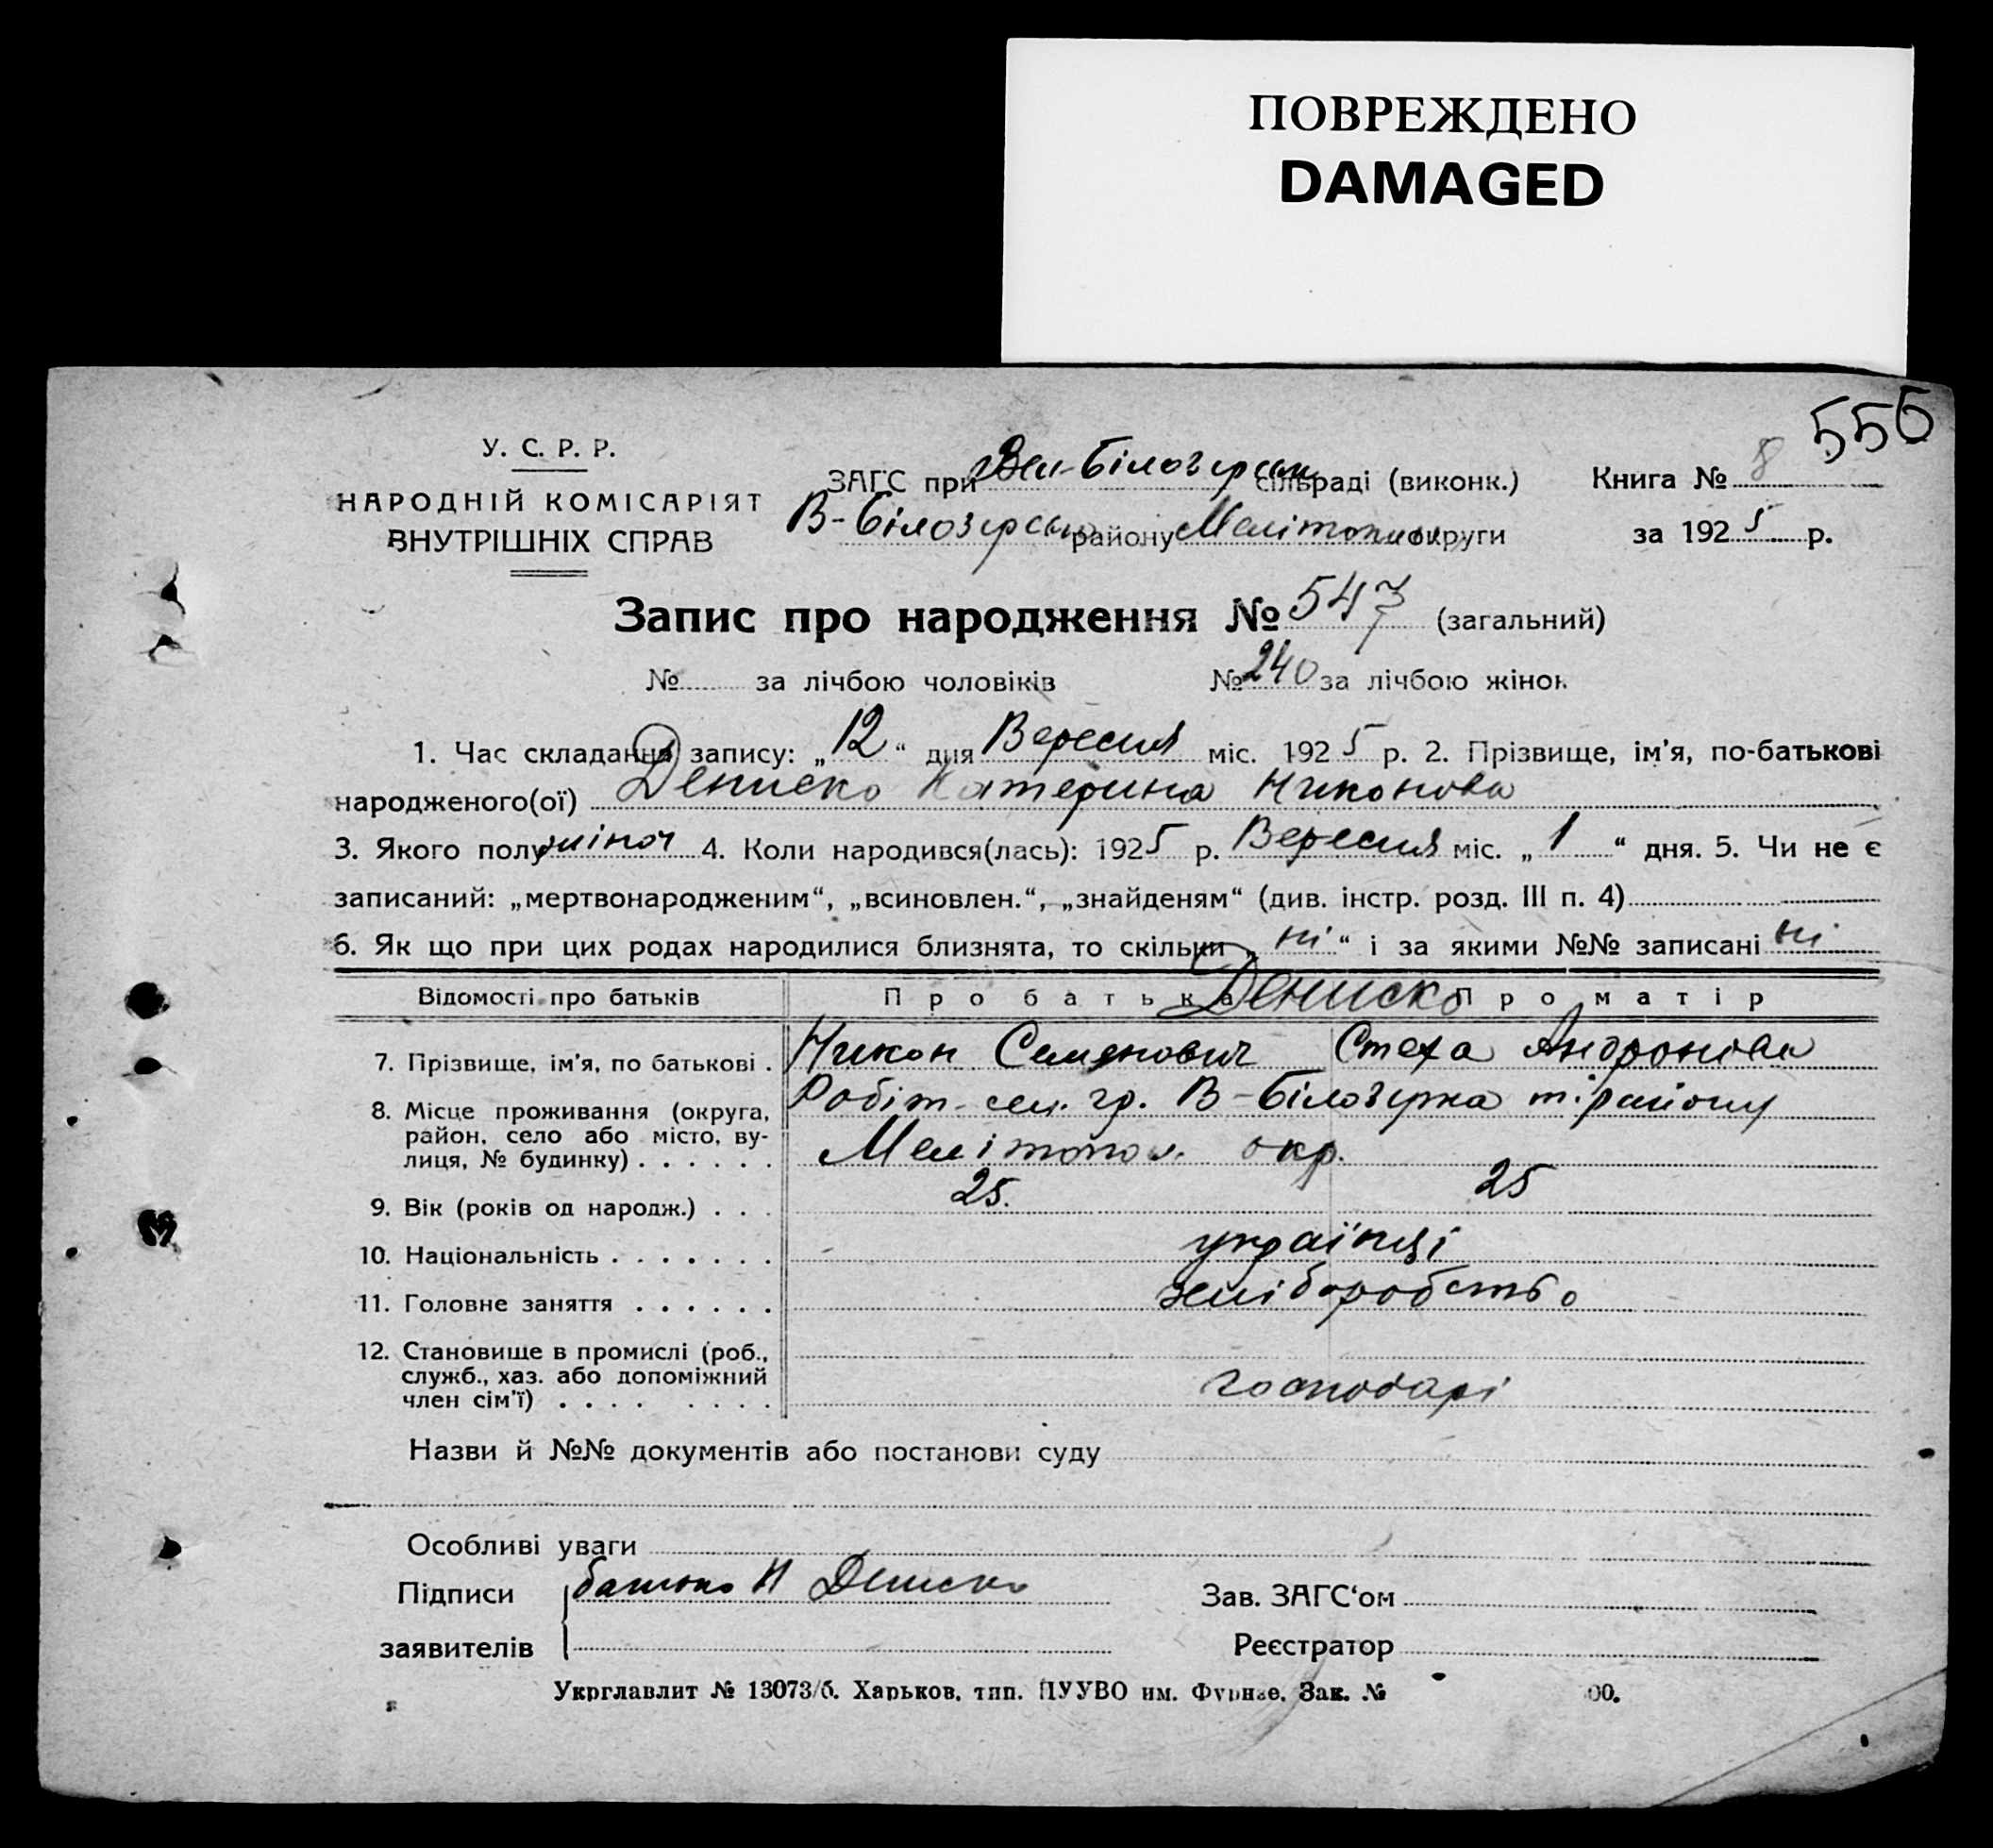 ПОВРЕЖДЕНО
DAMAGED
556
У. С. Р. Р.
НАРОДНІЙ КОМІСАРІЯТ
ВНУТРІШНІХ СПРАВ
ЗАГС при Вел-Білозерськ сільраді (виконк.) Книга № 8
В-Білозерськ району Мелітопол округи за 1925 р.
Запис про народження № 547 (загальний)
№ за лічбою чоловіків № 240 за лічбою жінок
1. Час складання запису: „12“ дня Вересня міс. 1925 р. 2. Прізвище, ім'я, по-батькові
народженого(ої) Дениско Катерина Никонова
3. Якого полу жіноч 4. Коли народився(лась): 1925 р. Вересня міс. „1“ дня. 5. Чи не є
записаний: „мертвонародженим“, „всиновлен.“, „знайденям“ (див. інстр. розд. III п. 4)
6. Як що при цих родах народилися близнята, то скільки „ні“ і за якими №№ записані ні
Відомості про батьків Про батька Про матір
Дениско
7. Прізвище, ім'я, по батькові . Никон Семенович Стеха Андронова
8. Місце проживання (округа, район, село або місто, ву-
лиця, № будинку) . . . . . . Робіт. сел. гр. В-Білозерка т. району
Мелітопол. окр.
9. Вік (років од народж.) . . . 25. 25
10. Національність . . . . . . . українці
11. Головне заняття . . . . . . хліборобство
12. Становище в промислі (роб.,
служб., хаз. або допоміжний
член сім'ї) . . . . . . . . господарі
Назви й №№ документів або постанови суду
Особливі уваги
Підписи батько Н Дениско Зав. ЗАГС‘ом
заявителів Реєстратор
Укрглавлит № 13073/б. Харьков, тип. ПУУВО им. Фрунзе. Зак. № 00.